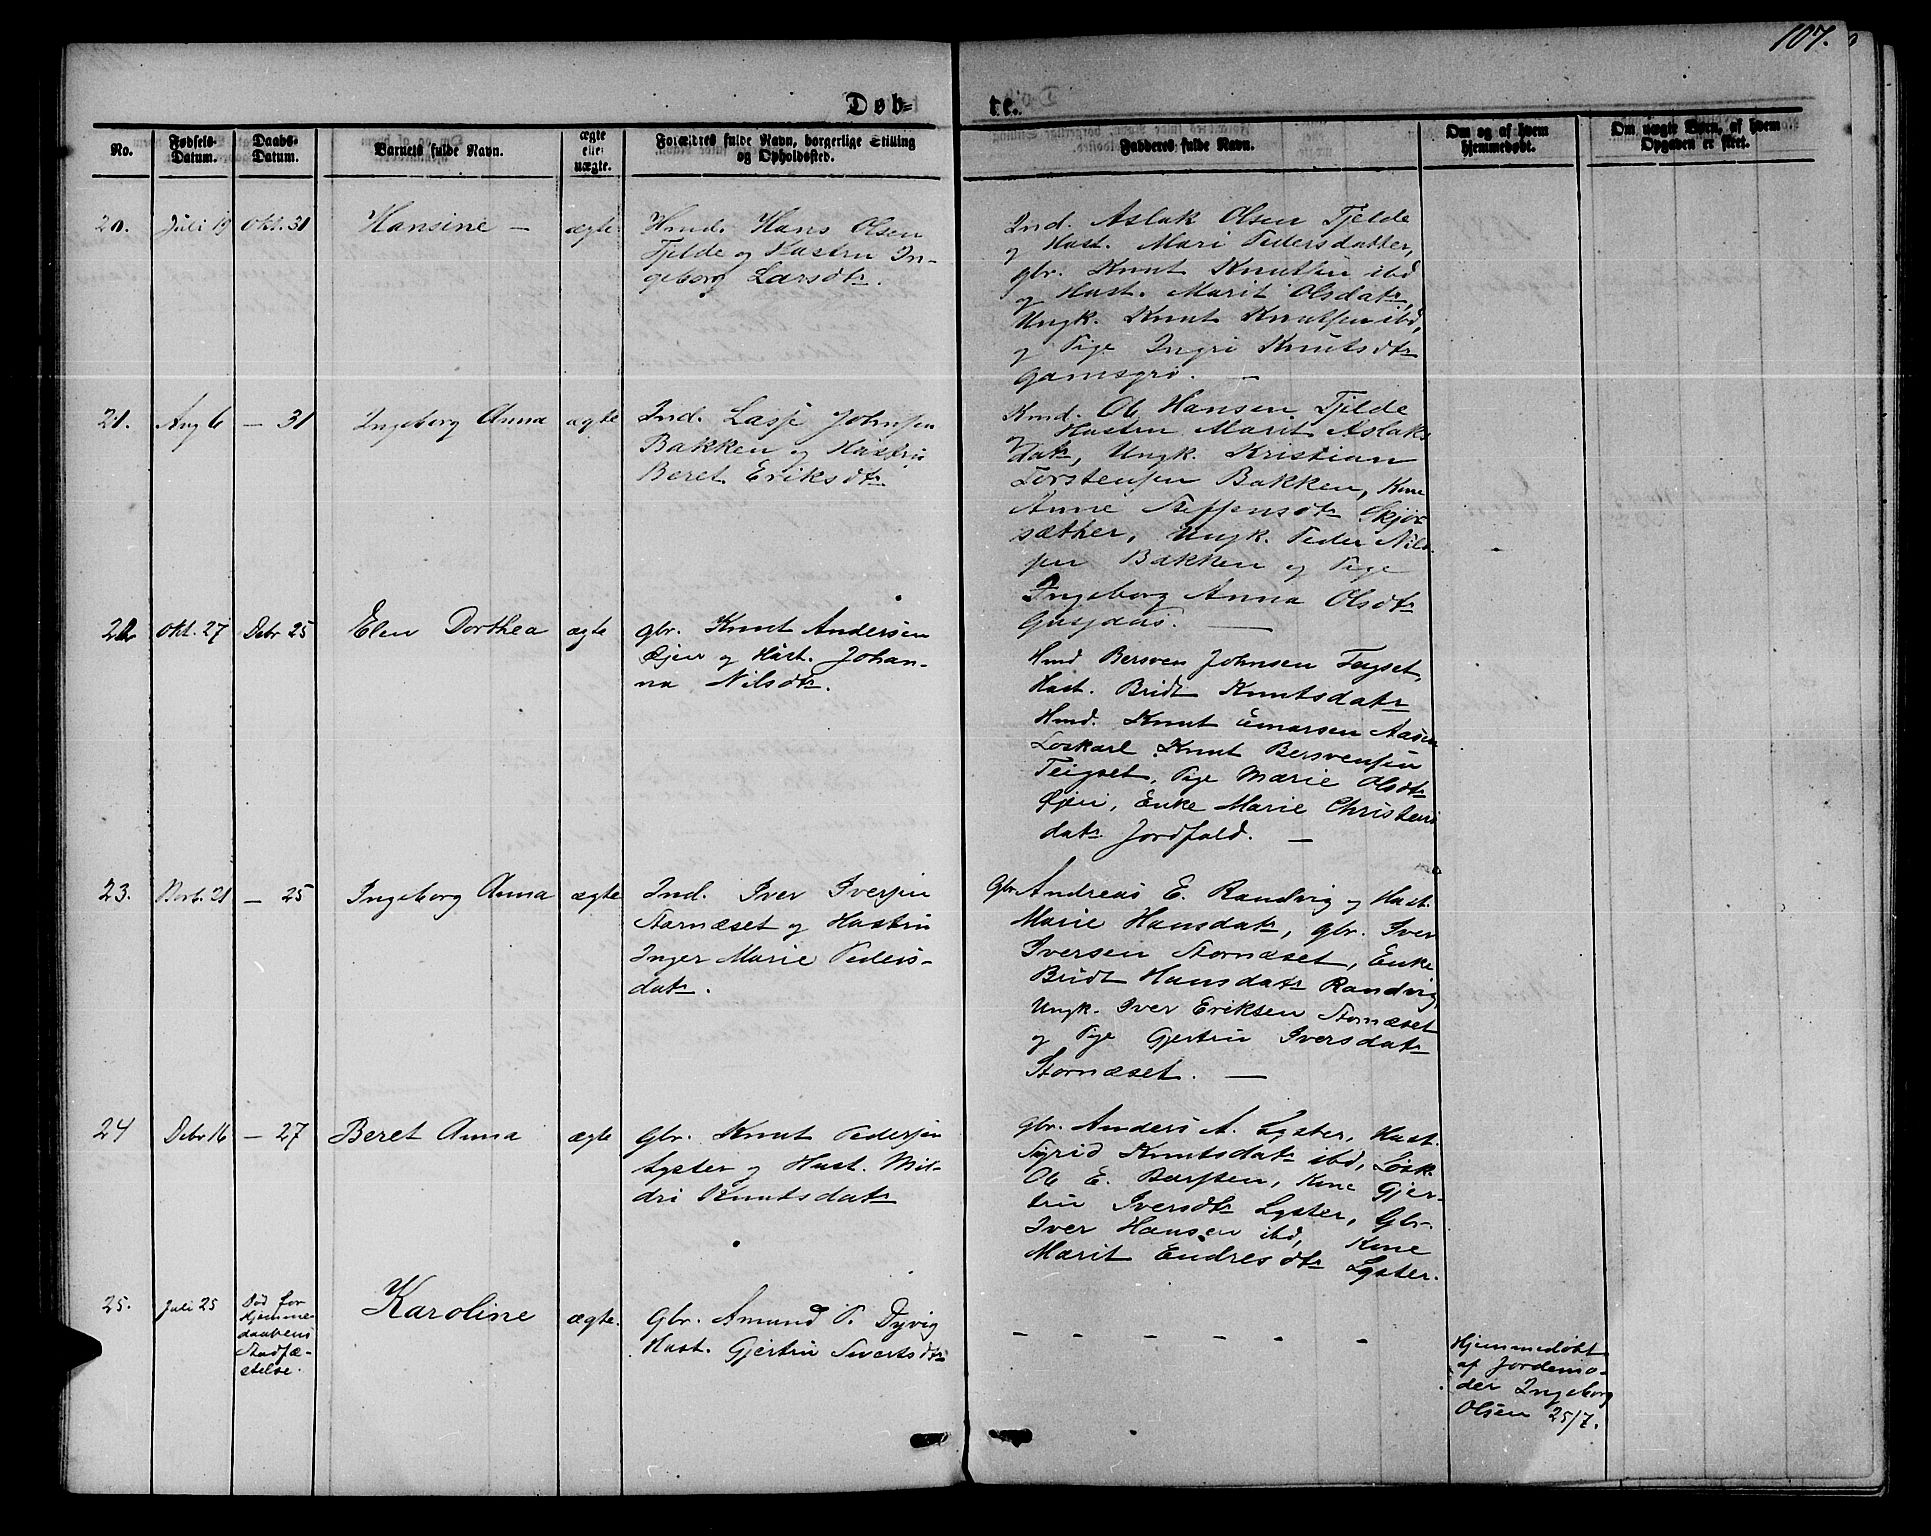 107.
Døb=
te.
No.
Fødsels-
Datum.
Daabs-
Datum.
Barnets fulde Navn.
ægte
eller
uægte.
Forældres fulde Navn, borgerlige Stilling
og Opholdssted.
Fadderes fulde Navn.
Om og af hvem
hjemmedøbt.
Om uægte Børn, af hvem
Opgaven er skeet.
20.
Juli 19
Okt. 31
Hansine —
ægte
Hmd. Hans Olsen
Tjelde og Hustru In-
geborg Larsdtr.
Ind. Aslak Olsen Tjelde
og Hust. Mari Pedersdatter,
gbr. Knut Knutsen ibd
og Hust. Marit Olsdatr,
Ungk. Knut Knutsen ibd,
og Pige Ingri Knutsdtr
21.
Aug 6
— 31
Ingeborg Anna
ægte
Ind. Lasse Johnsen
Bakken og Hustru
Beret Eriksdtr.
Ole Hansen Tjelde
og Hustru Marit Aslaks
datr, Ungk. Kristian
Torstensen Bakken, Kone
Anne Steffensdtr Skjør
sæther, Ungk. Peder Nils
sen Bakken og Pige
Ingeborg Anna Olsdtr
22
Okt. 27
Debr 25
Elen Dorthea
ægte
gbr. Knut Andersen
Øjen og Hust. Johan-
na Nilsdtr.
Hmd Bersven Johnsen Tegset,
Hust. Bridt Knutsdatr
Hmd. Knut Einarsen Aasen
Løskarl Knut Bersvensen
Teigset, Pige Marie Olsdtr
Øjen, Enke Marie Christens
datr. Jordfald. —
23.
Novb. 21
— 25
Ingeborg Anna
ægte
Ind. Iver Iversen
Stornæset og Hustru
Inger Marie Peders-
datr.
Gbr. Andreas E. Randvig og Hust.
Marie Hansdatr, gbr. Iver
Iversen Stornæset, Enke
Bridt Hansdatr Randvig,
Ungk. Iver Eriksen Stornæset
og Pige Gjertru Iversdatr
Stornæset. —
24
Debr 16
— 27
Beret Anna
ægte
gbr. Knut Pedersen
Lyster og Hust. Mil-
dri Knutsdatr
gbr. Anders A. Lyster, Hust.
Sigrid Knutsdatr ibd, Løsk.
Ole E. Kone Gjer-
tru Iversdtr Lyster, Gbr.
Iver Hansen ibd, Kone
Marit Endresdtr Lyster.
25.
Juli 25
Død før
Hjemme-
daabens
Stadfæ-
stelse.
Karoline
ægte.
Gbr. Amund P. Dyvig
Hust. Gjertru Sivertsdtr
— — — — — —
Hjemmedøbt
af Jordemo-
der Ingeborg
Olsen 25/7.